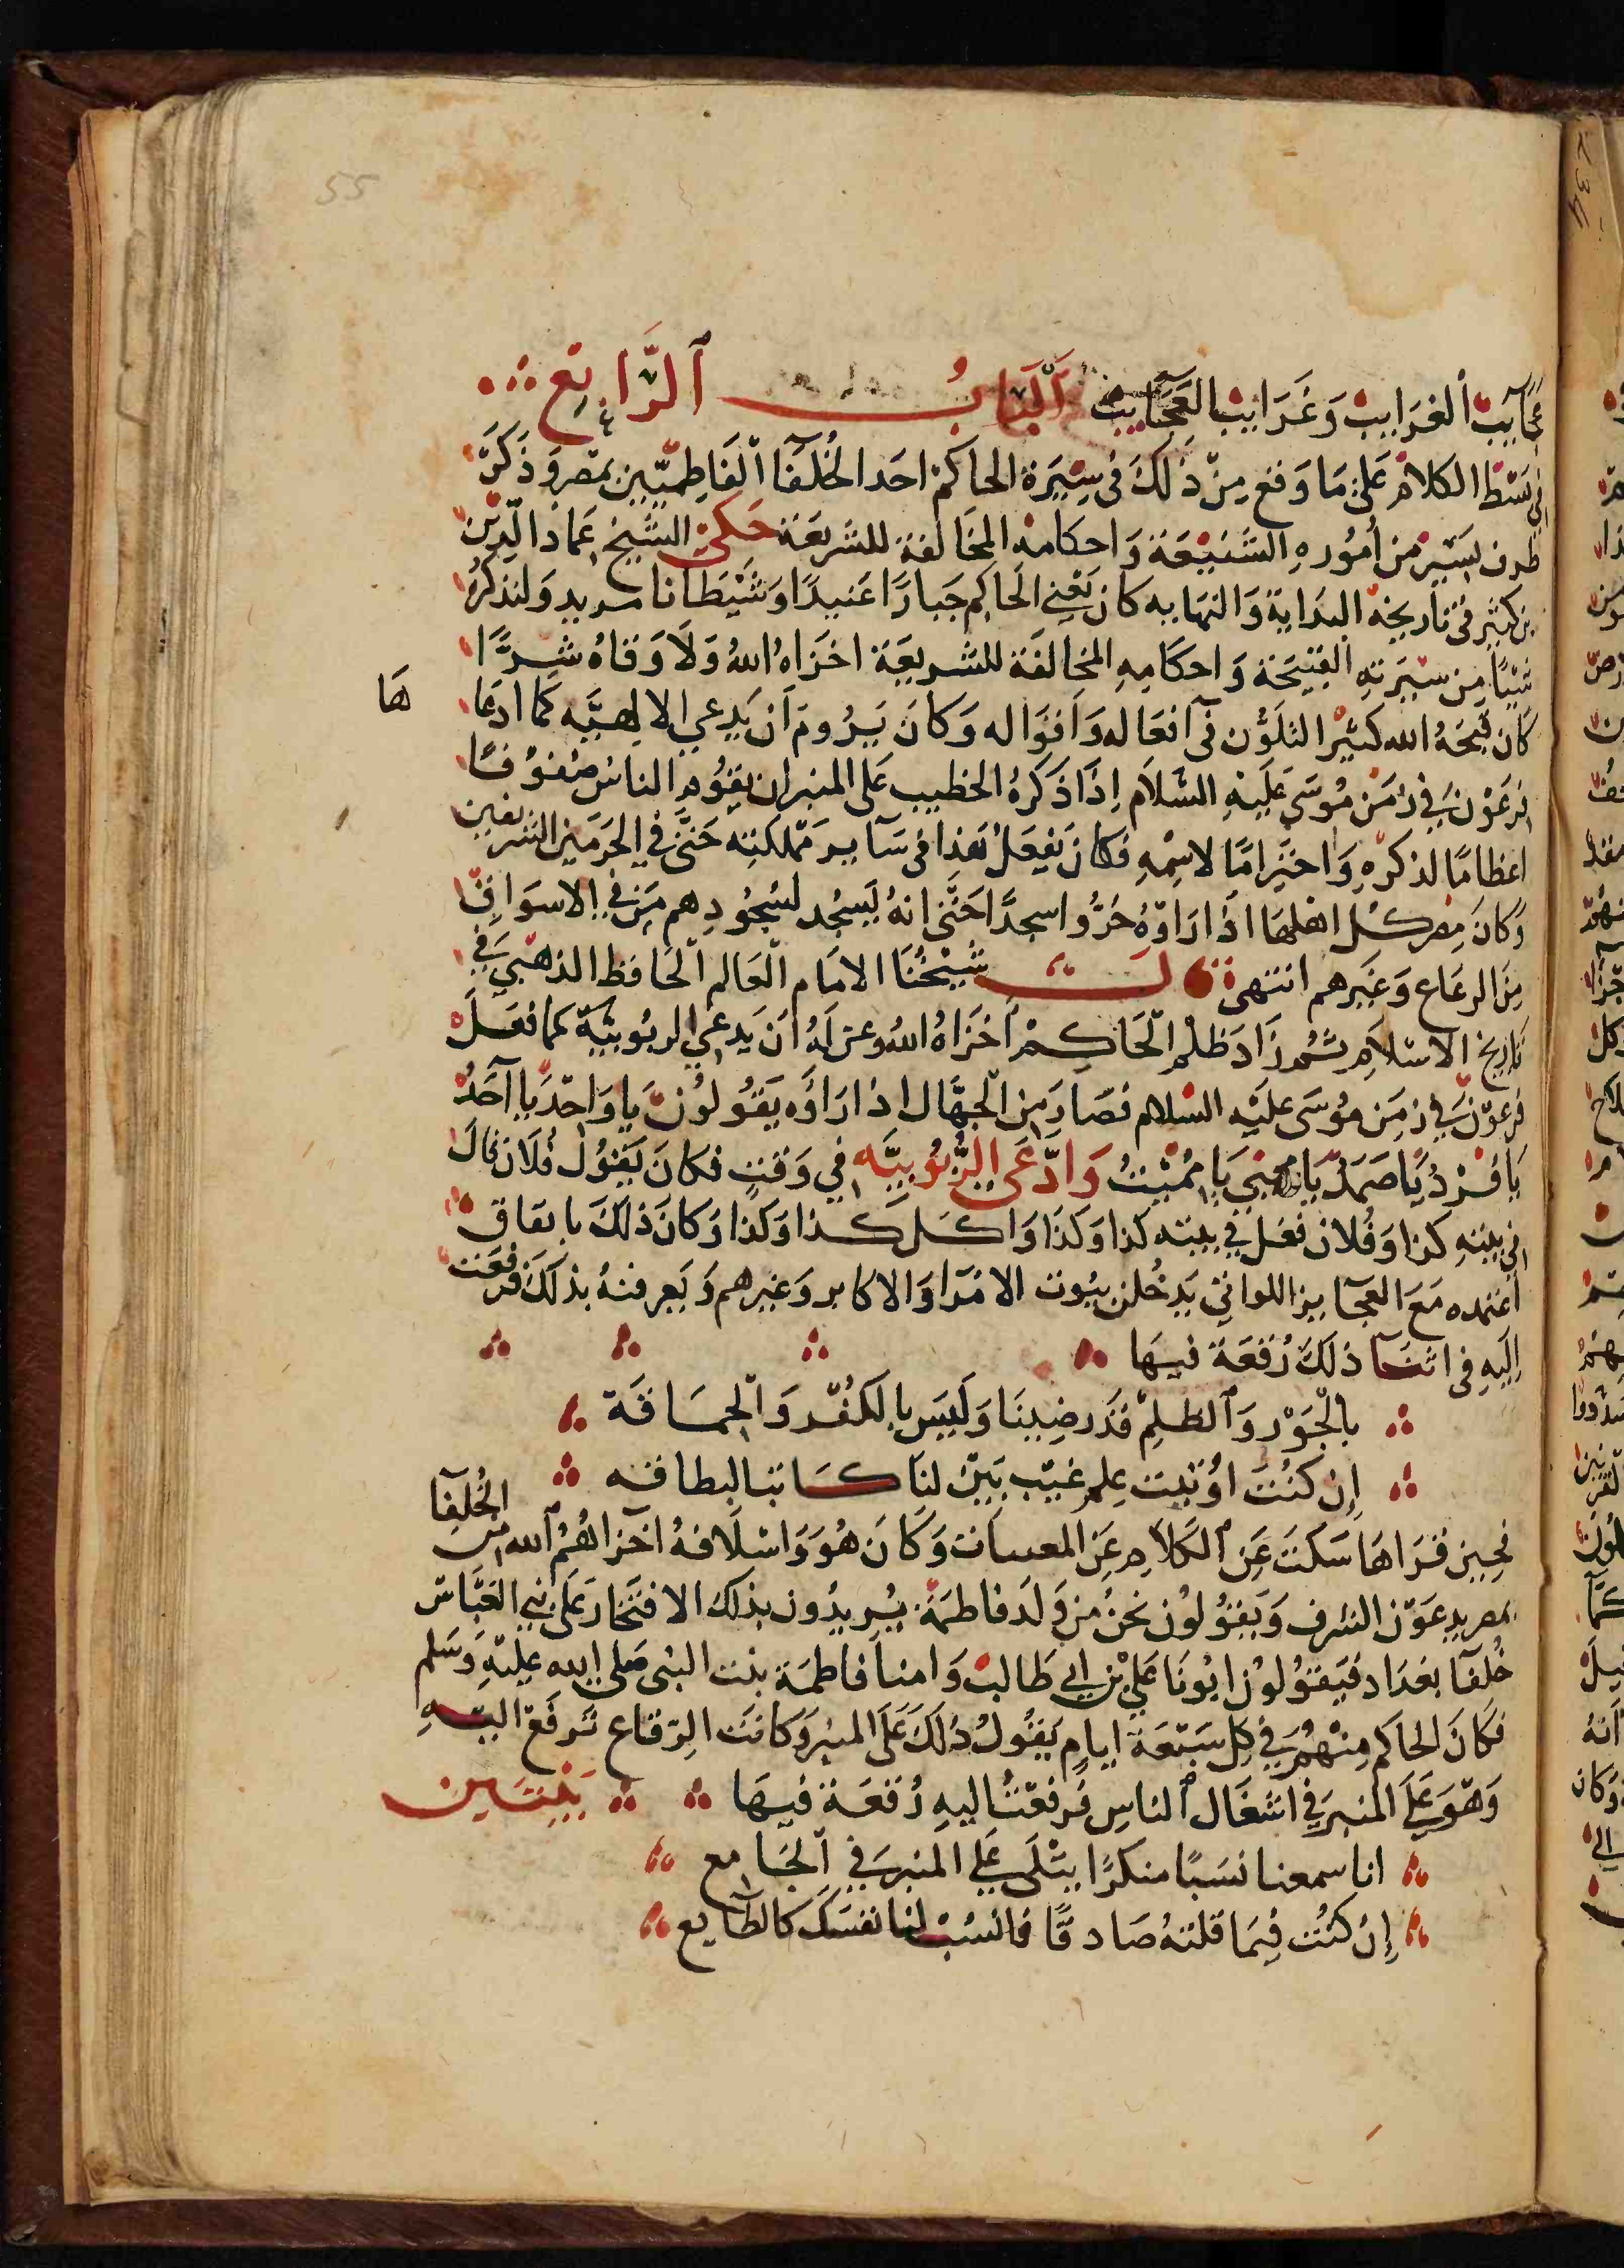 55
عجايب الغرايب وغرايب العجايب الباب الرابع
في بسط الكلام على ما وقع من ذلك في سيرة الحاكم احد الخلفا الفاطميين بمصر وذكر
طرف يسير من اموره الشنيعة واحكامه المخالفة للشريعة حكى الشيخ عماد الدين
بن كثير في تاريخه البداية والنهايه كان يعني الحاكم جبارا عنيدا وشيطانا مريد ولنذكر
شيا من سيرته القبيحة واحكامه المخالفة للشريعة اخزاه الله ولا وقاه شرا
كان قبحه الله كثير التلون في افعاله واقواله وكان يروم ان يدعي الالهيه كما ادعاها
فرعون في زمن موسى عليه السلام اذا ذكره الخطيب على المنبر ان يقوم الناس صفوفا
اعظاما لذكره واحتراما لاسمه فكان يفعل هذا في ساير مملكته حتى في الحرمين الشريفين
وكان مصر كل اهلها اذا راوه خروا سجدا حتى انه ليسجد لسجودهم من في الاسواق
من الرعاع وغيرهم انتهى قلت شيخنا الامام العالم الحافظ الذهبي في
تاريخ الاسلام ثم زاد ظلم الحاكم اخزاه الله وعن له ان يدعي الربوبية كما فعل
فرعون في زمن موسى عليه السلام فصار من الجهال اذا راوه يقولون يا واحد يا احد
يا فرد يا صمد يا محيي يا مميت وادعى الربوبيه في وقت فكان يقول فلان قال
في بيته كذا وفلان فعل في بيته كذا وكذا واكل كذا وكذا وكان ذلك باتفاق
اعتمده مع العجايز اللواتي يدخلن بيوت الامرا والاكابر وغيرهم ويعرفنه بذلك فرفعت
اليه في اثنا ذلك رقعة فيها
بالجور والظلم قد رضينا وليس بالكفر والحماقة
ان كنت اوتيت علم غيب بين لنا كاتب البطاقه
فحين قراها سكت عن الكلام عن المغيبات وكان هو واسلافه اخزاهم الله من الخلفا
بمصر يدعون الشرف ويقولون نحن من ولد فاطمة يريدون بذلك الافتخار على بني العباس
خلفا بغداد فيقولون ابونا علي بن ابي طالب وامنا فاطمة بنت النبي صلى الله عليه وسلم
فكان الحاكم منهم في كل سبعة ايام يقول ذلك على المنبر وكانت الرقاع ترفع اليه
وهو على المنبر في اشغال الناس فرفعت اليه رقعة فيها بيتين
انا سمعنا نسبا منكرا يتلى على المنبر في الجامع
ان كنت فيما قلته صادقا فانسب لنا نفسك كالطايع